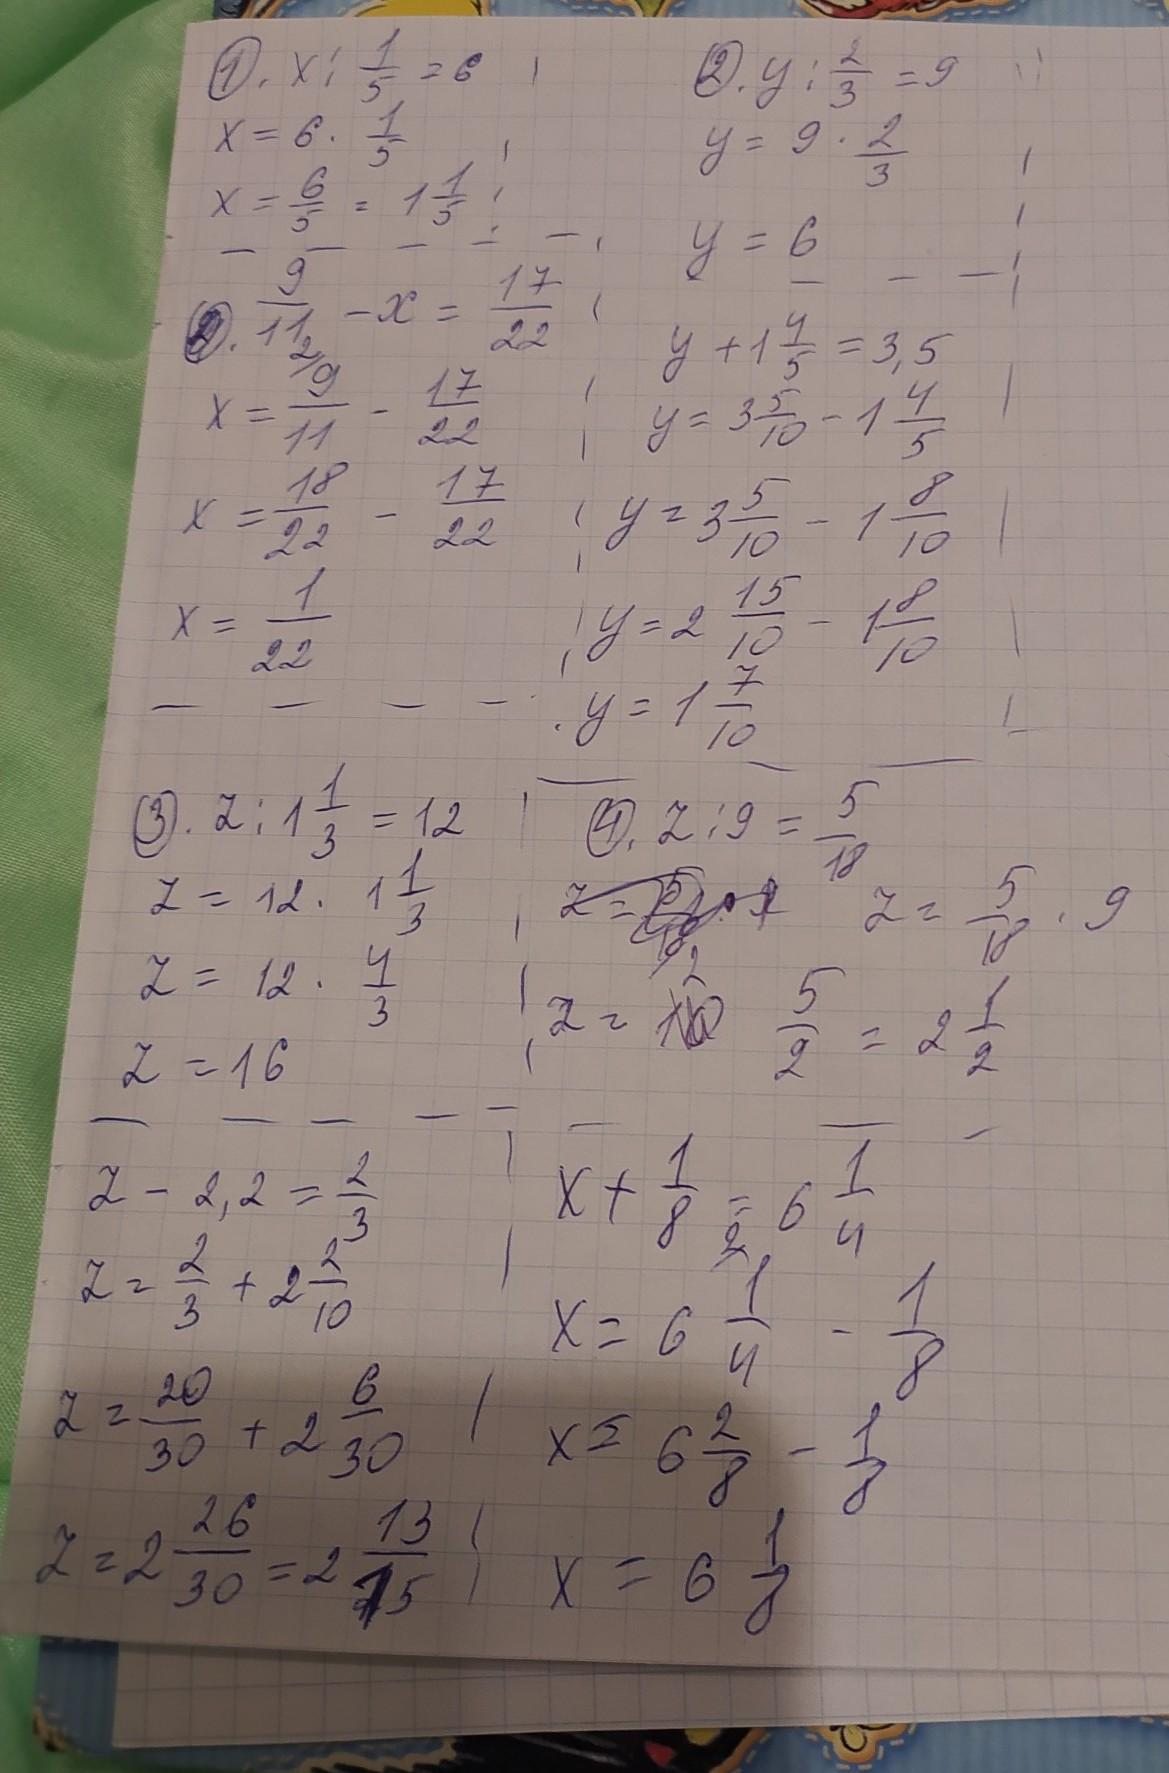 1. x : 1/5 = 6
x = 6 · 1/5
x = 6/5 = 1 1/5
2. y : 2/3 = 9
y = 9 · 2/3
y = 6
2. 9/11 - x = 17/22
x = 9/11 - 17/22
x = 18/22 - 17/22
x = 1/22
y + 1 4/5 = 3,5
y = 3 5/10 - 1 4/5
y = 3 5/10 - 1 8/10
y = 2 15/10 - 1 8/10
y = 1 7/10
3. z : 1 1/3 = 12
z = 12 · 1 1/3
z = 12 · 4/3
z = 16
4. z : 9 = 5/18
z = 5/18 · 9
z = 5/2 = 2 1/2
z - 2,2 = 2/3
z = 2/3 + 2 2/10
z = 20/30 + 2 6/30
z = 2 26/30 = 2 13/15
x + 1/8 = 6 1/4
x = 6 1/4 - 1/8
x = 6 2/8 - 1/8
x = 6 1/8